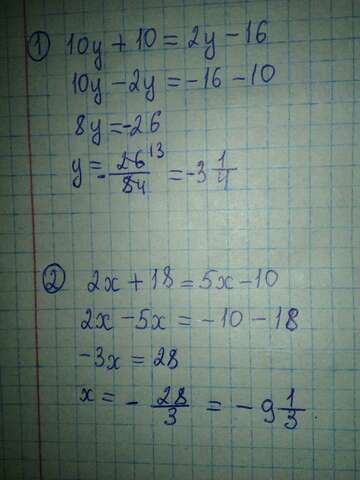 ① 10y + 10 = 2y - 16
10y - 2y = -16 - 10
8y = -26
y = - 26 13 / 8 4 = -3 1/4
② 2x + 18 = 5x - 10
2x - 5x = -10 - 18
-3x = 28
x = - 28/3 = - 9 1/3.